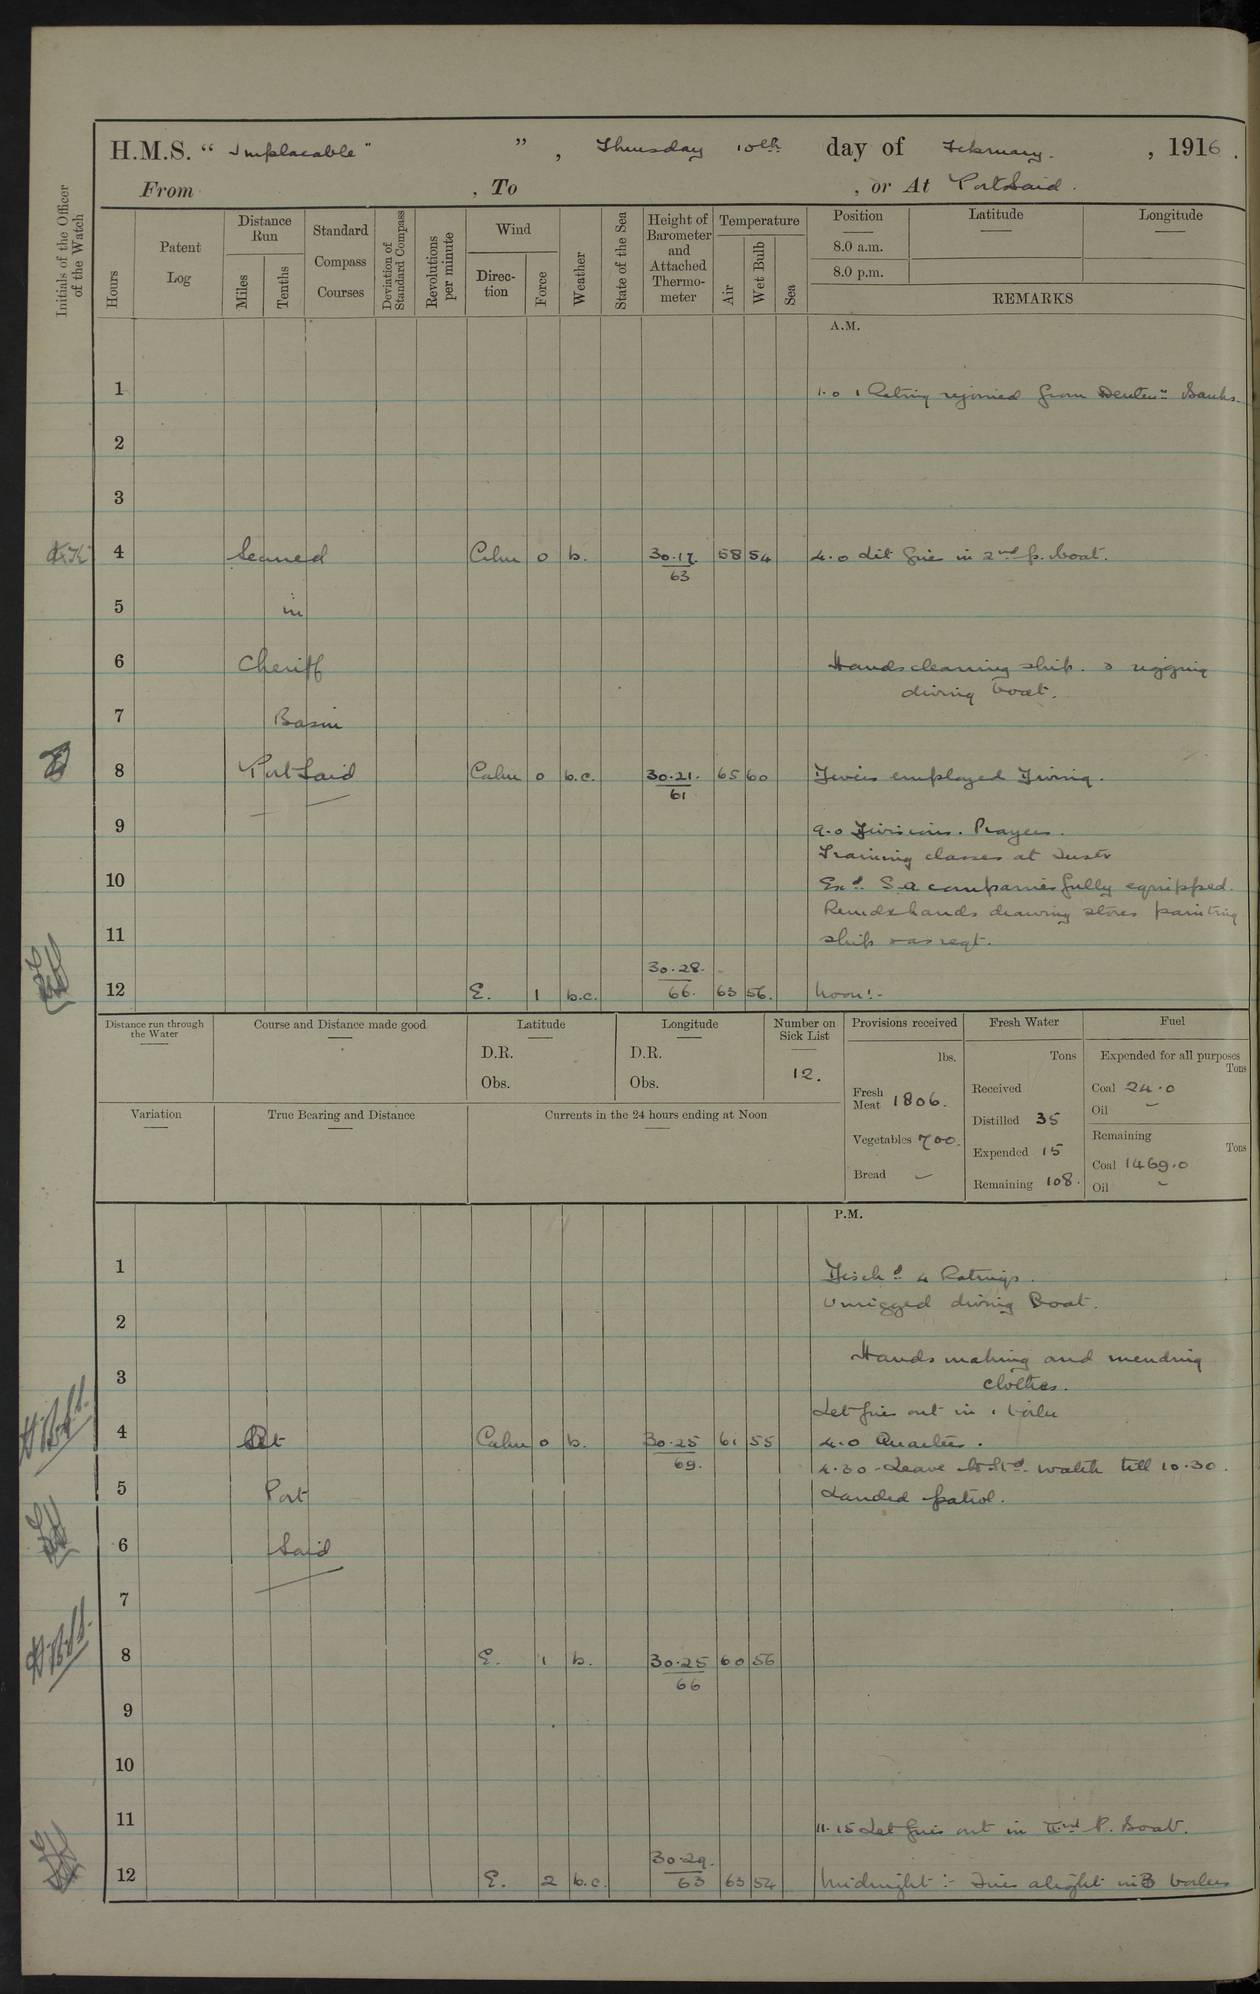 H.M.S. “ Implacable ” ” , Thursday 10th day of February. , 1916 .
From , To , or At Port Said .
Initials of the Officer of the Watch
Hours
Patent Log
Distance Run
Miles
Tenths
Standard Compass Courses
Deviation of Standard Compass
Revolutions per minute
Wind
Direc-tion
Force
Weather
State of the Sea
Height of Barometer and Attached Thermo-meter
Temperature
Air
Wet Bulb
Sea
Position Latitude Longitude
8.0 a.m.
8.0 p.m.
REMARKS
A.M.
1 1.0 1 Rating rejoined from Banks.
2
3
4 Secured Calm 0 b. 30.17. 58 54 4.0 Lit fire in 2nd p. boat.
63
5 in
6 Cheriff Hands cleaning ship. & rigging
diving boat.
7 Basin
8 Port Said Calm 0 b.c. 30.21. 65 60 Divers employed Diving.
61
9 9.0 Divisions. Prayers.
Training classes at Instr
10 Exd. S.A. companies fully equipped.
Remdr hands drawing stores painting
11 ship as reqt.
30.28.
12 E. 1 b.c. 66. 63 56. Noon:-
Distance run through the Water
Course and Distance made good
Latitude
D.R.
Obs.
Longitude
D.R.
Obs.
Number on Sick List
12.
Provisions received
lbs.
Fresh Meat 1806.
Vegetables 700.
Bread –
Fresh Water
Tons
Received
Distilled 35
Expended 15
Remaining 108.
Fuel
Expended for all purposes
Tons
Coal 24.0
Oil –
Remaining
Tons
Coal 1469.0
Oil –
Variation
True Bearing and Distance
Currents in the 24 hours ending at Noon
P.M.
1 Dischd 4 Ratings.
Unrigged diving Boat.
2
Hands making and mending
3 clothes.
Let fires out in 1 boiler
4 At Calm 0 b. 30.25 61 55 4.0 Quarters.
69.
4.30 - Leave to watch till 10.30.
5 Port Landed patrol.
6 Said
7
8 E. 1 b. 30.25 60 56
66
9
10
11 11.15 Let fires out in IInd P. Boat.
30.29.
12 E. 2 b.c. 63 63 54 Midnight :- Fires alight in 3 boilers